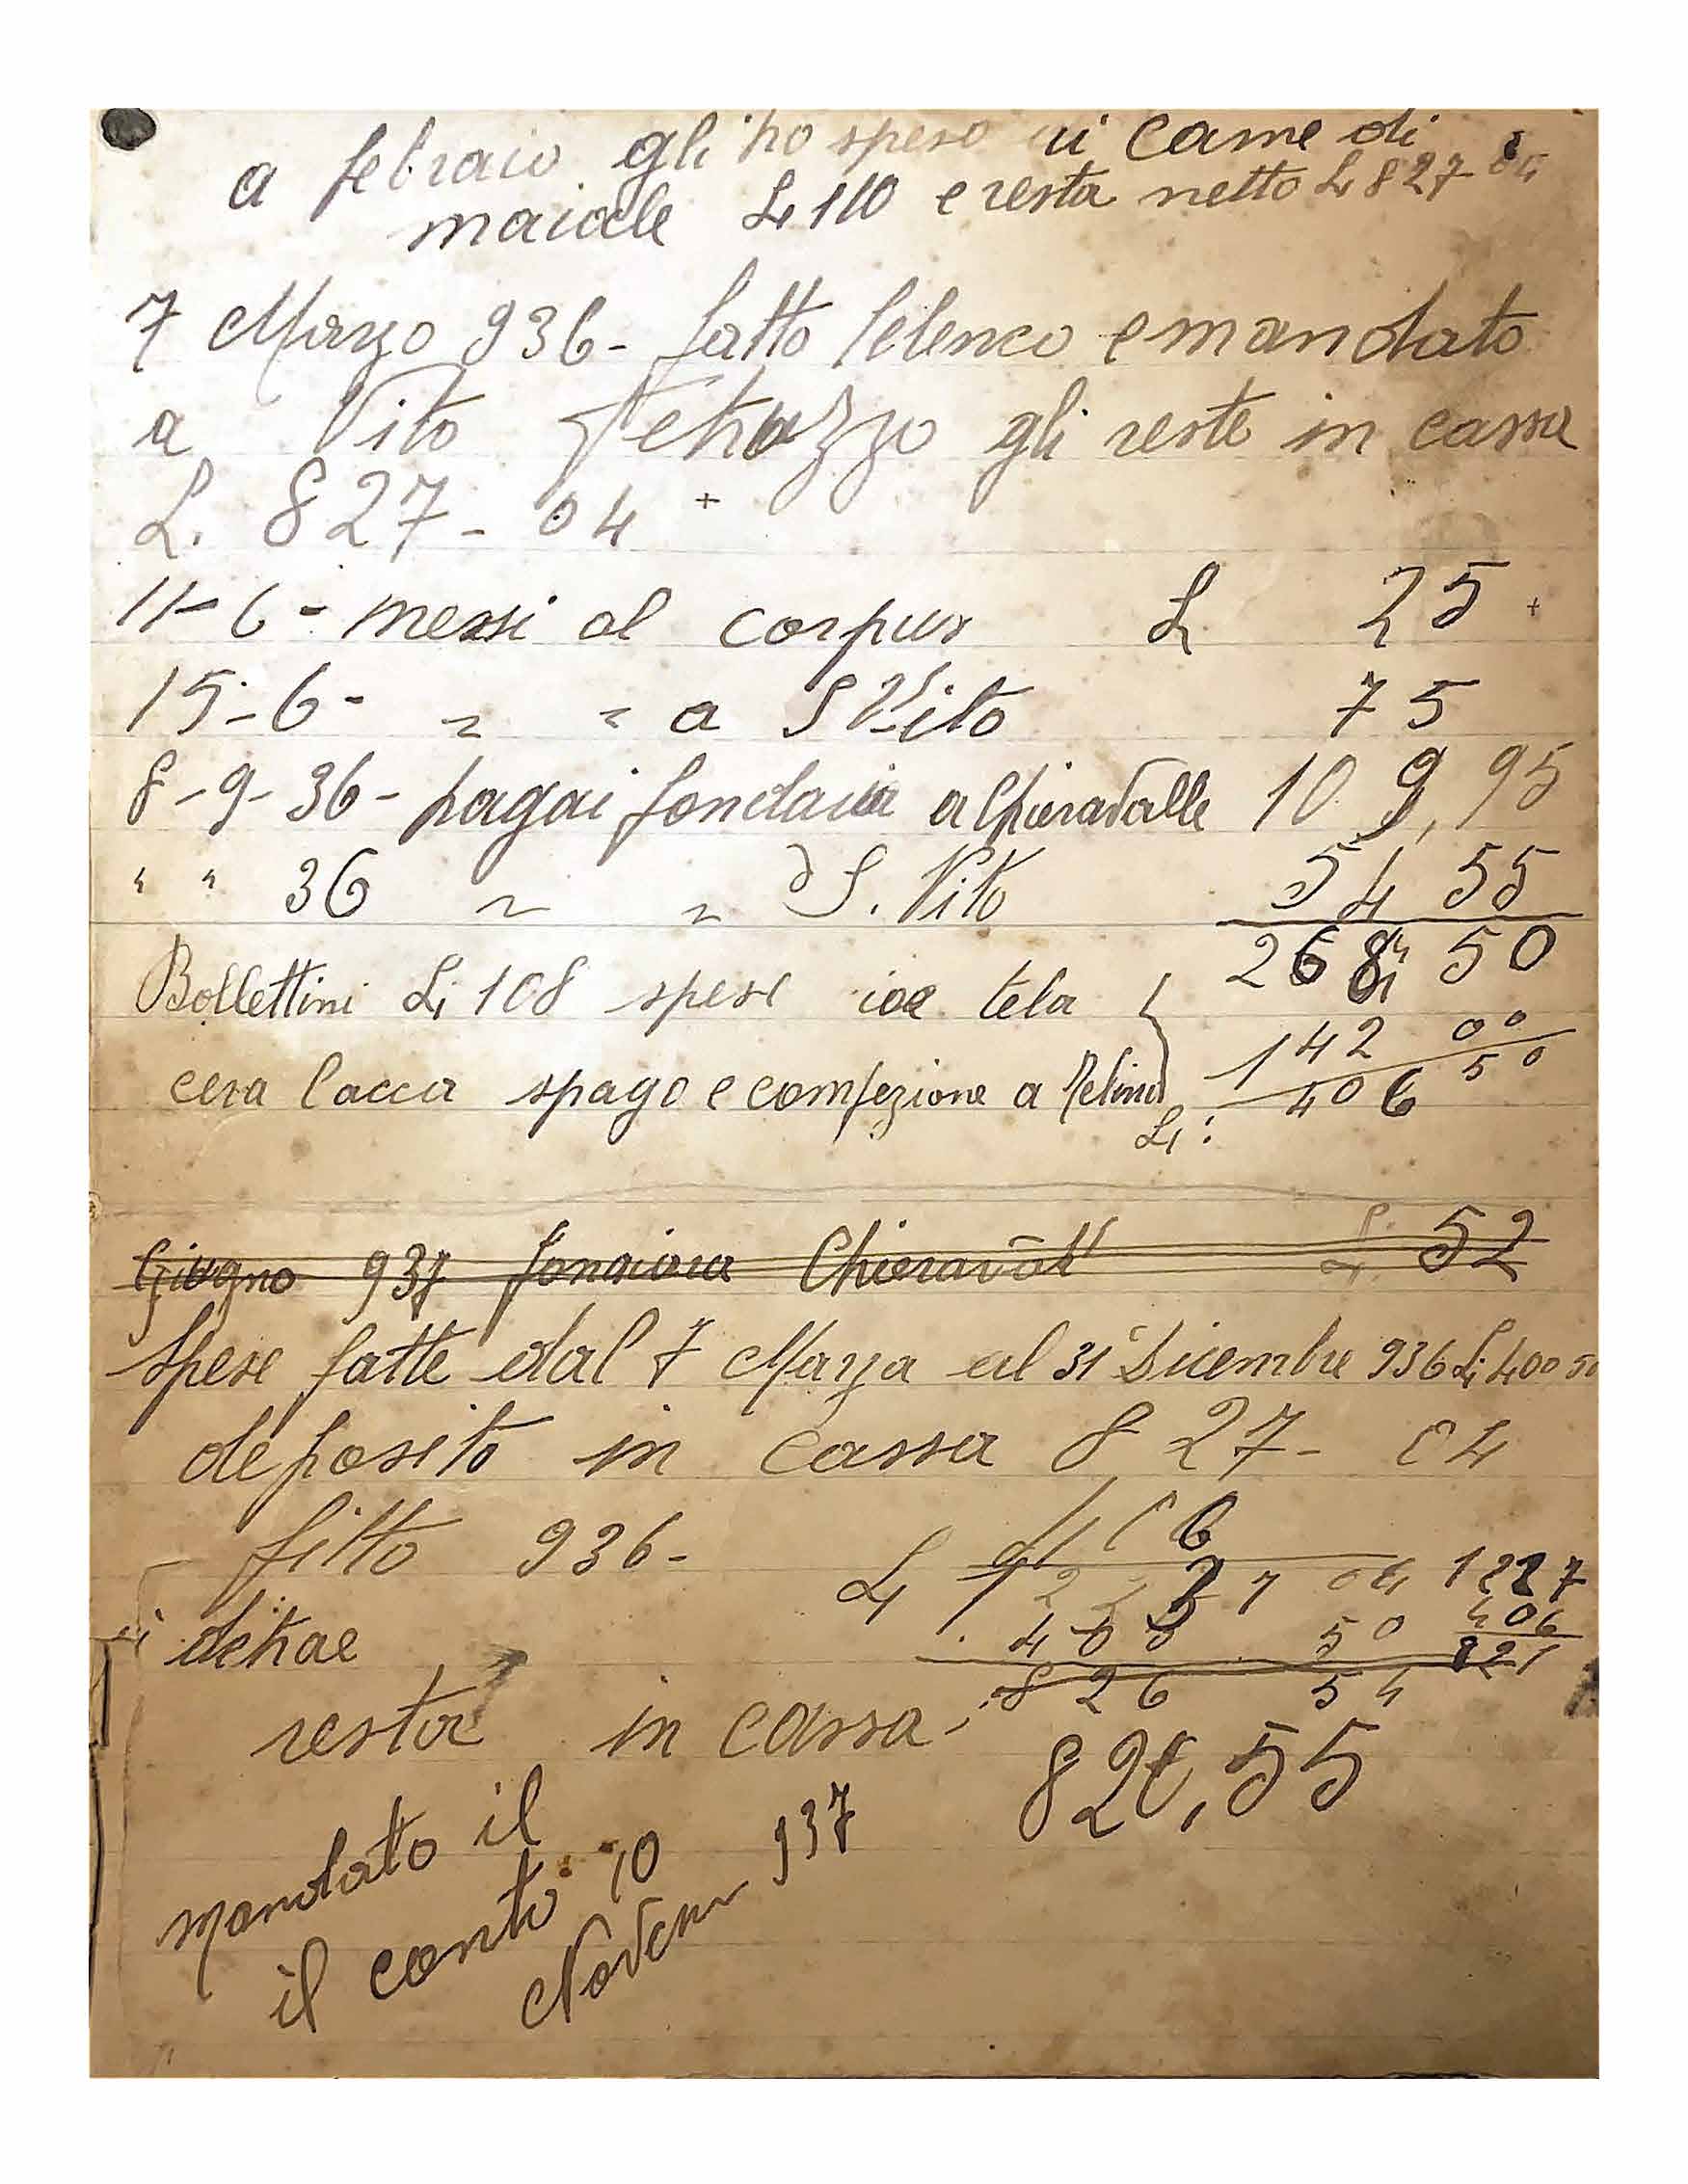 a febraio gli ho speso di carne di
maiale L. 110 e resta netto L. 827 04
7 Marzo 936 - fatto lelenco e mandato
a Vito gli reste in cassa
L. 827 - 04 +
11 - 6 - messi al corpus L. 25 +
15 - 6 - " " a S Vito 75
8 - 9 - 36 - pagai fondaria a Chiaravalle 109,95
" " 36 " " S. Vito 54 55
264 50
Bollettini L. 108 spese tela
142 00
cera lacca spago e confezione a
L. : 406 50
Giugno 937 fondiara Chiaravall L. 52
Spese fatte dal 7 Marza al 31 Dicembre 936 L. 400 50
deposito in cassa 827 - 04
fitto 936 - 400
L. 1227 04 1227
detrae 400 50 406
821
826 54
resta in cassa - 820,55
mandato il
il conto 10
Novem 937